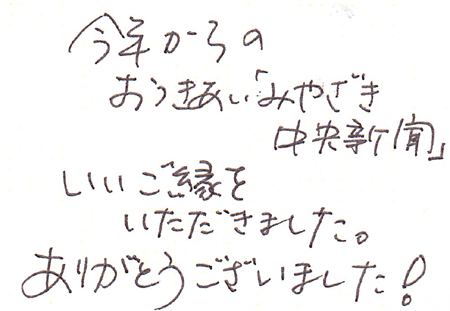 今年からの
おつきあい「みやざき
中央新聞」
いいご縁を
いただきました。
ありがとうございました!